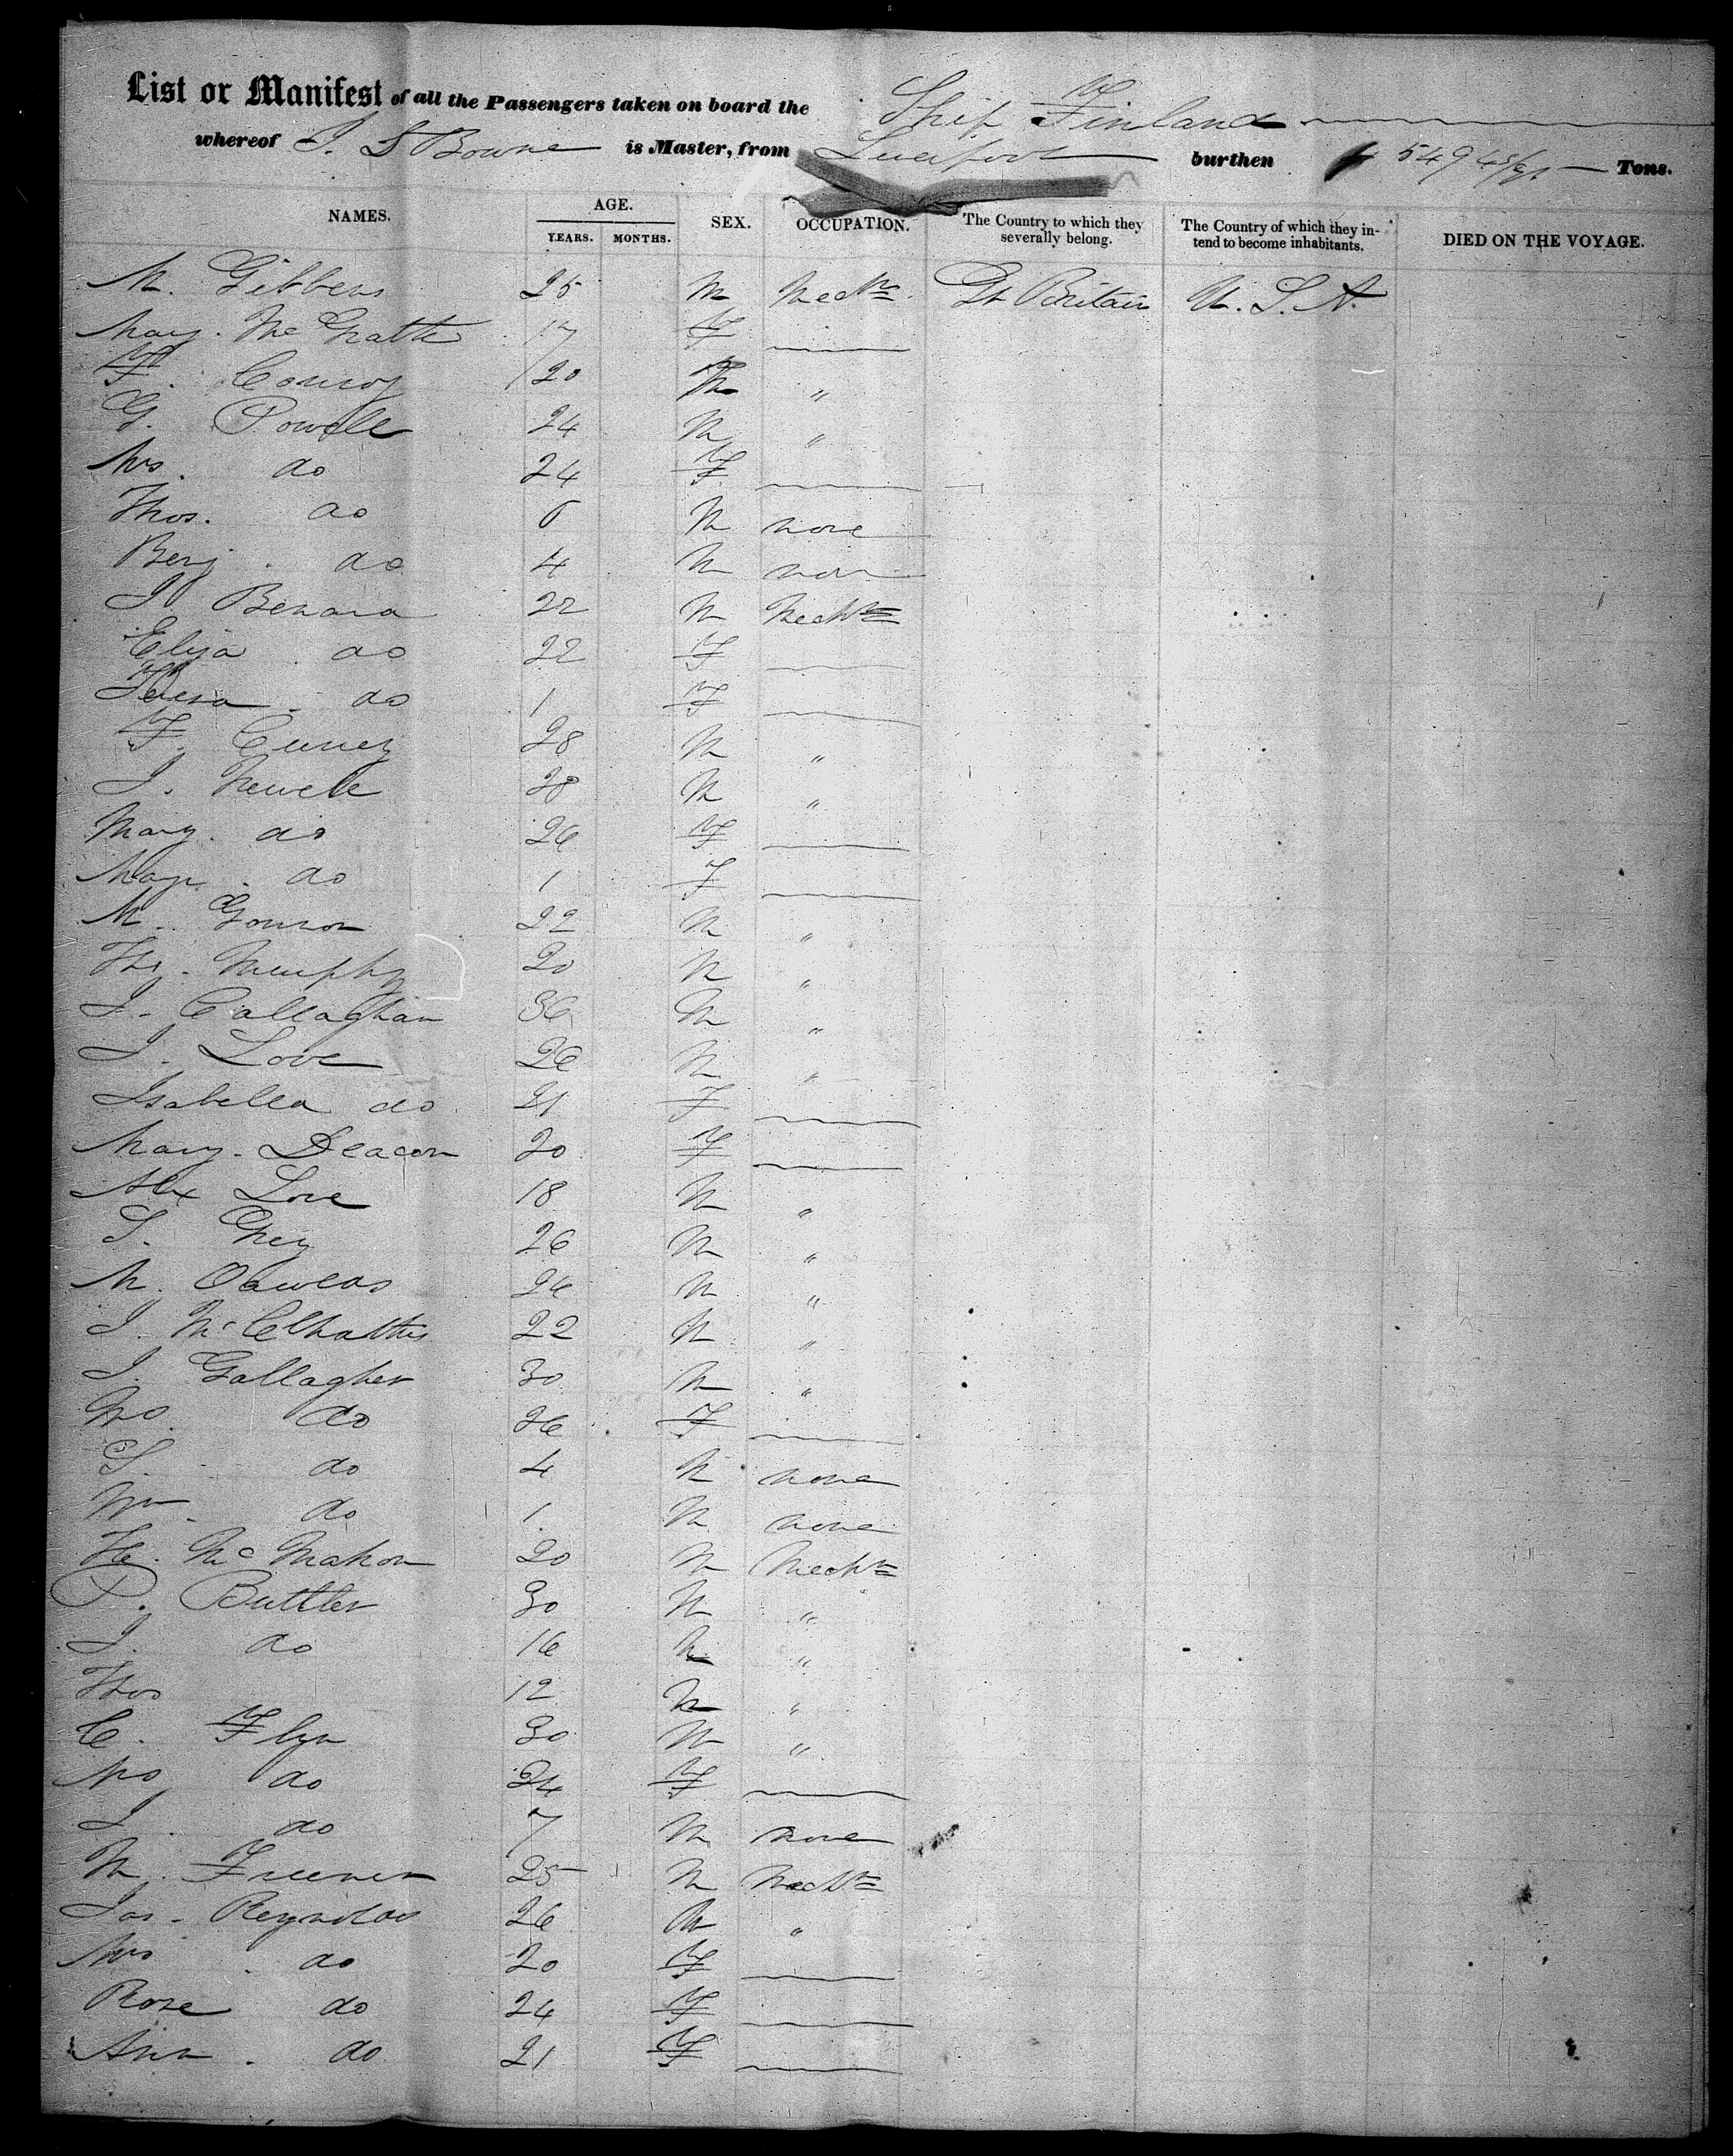 List or Manifest of all the Passengers taken on board the Ship Finland
whereof J. S Bowne is Master, from Liverpool burthen 549 Tons.
NAMES. AGE. YEARS. MONTHS. SEX. OCCUPATION. The Country to which they severally belong. The Country of which they intend to become inhabitants. DIED ON THE VOYAGE.
M. Gibbens 25 M Mechc Gt Britain U. S. A.
Mary. McGrath 17 F
F. Conroy 20 M "
G. Powell 24 M "
Mrs. do 24 F
Thos. do M none
Benj. do 4 M none
J. 22 M Mechc
Eliza do 22 F
Teresa do 1 F
F. 28 M "
J. Newell 28 M "
Mary. do 26 F
Mary. do 1 F
M. 22 M "
Murphy 20 M "
J. Callaghan 36 M "
J. Love 26 M "
Isabella do 21 F
Mary. Deacon 20 F
Alex Love 18 M "
S. Grey 26 M "
M. 26 M "
J. 22 M "
J. Gallagher 30 M "
Mrs. do 26 F
S. do 4 M none
Wm do 1 M none
H. McMahon 20 M Mechc
P. Buttler 30 M "
J. do 16 M "
Thos 12 M "
C. Flyn 30 M "
Mrs do 24 F
J. do 7 M none
M. 25 M Mechc
Jas. Reynolds 26 M "
Mrs. do 20 F
Rose do 24 F
Ann. do 21 F